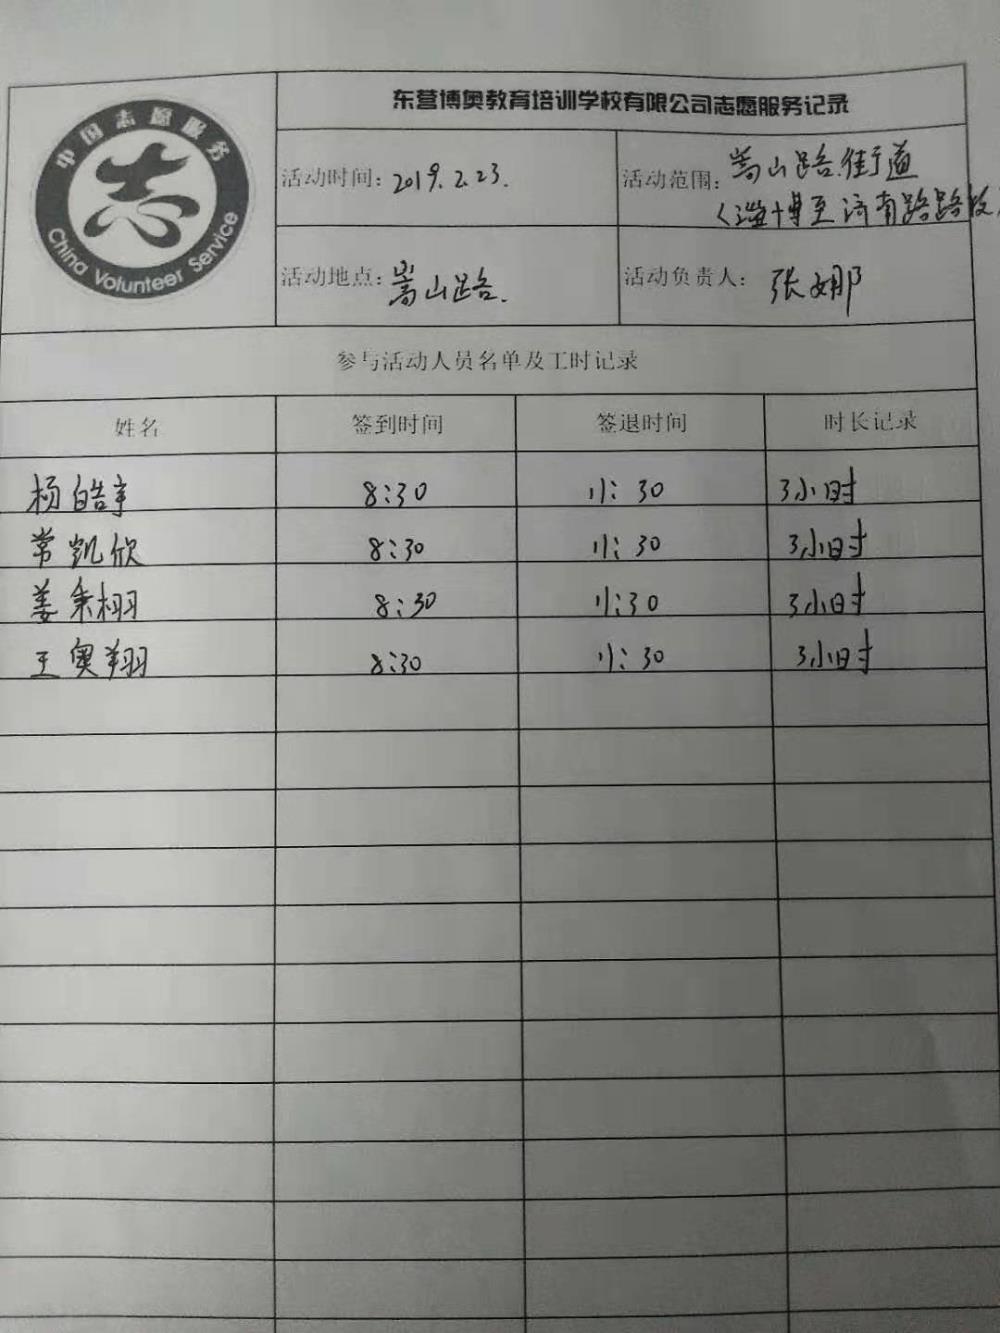 中国志愿服务
China Volunteer Service
东营博奥教育培训学校有限公司志愿服务记录
活动时间: 2019.2.23.
活动范围: 嵩山路街道
(淄博至济南路路段
活动地点: 嵩山路.
活动负责人: 张娜
参与活动人员名单及工时记录
姓名 签到时间 签退时间 时长记录
杨皓宇 8:30 11:30 3小时
常凯欣 8:30 11:30 3小时
姜秉栩 8:30 11:30 3小时
王奥翔 8:30 11:30 3小时